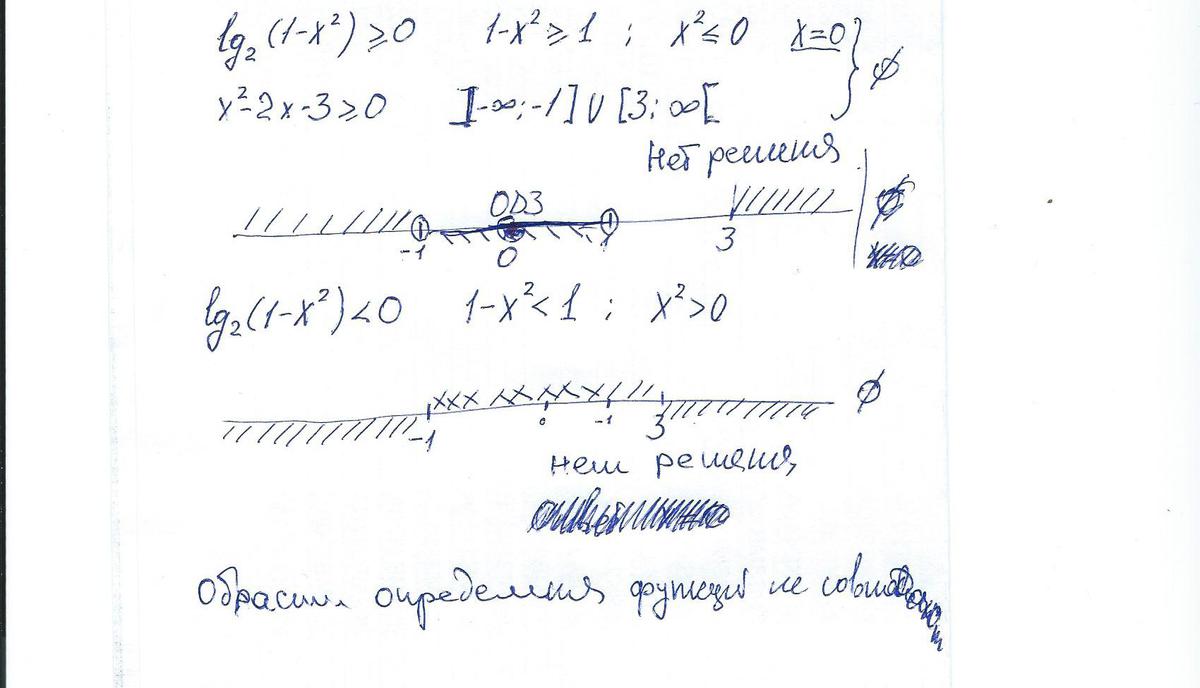 lg₂(1-x²)≥0 1-x²≥1 ; x²≤0 x=0
x²-2x-3≥0 ]-∞;-1]∪[3;∞[ } ∅
Нет решения
ОДЗ
-1 0 1 3
lg₂(1-x²)<0 1-x²<1 ; x²>0
∅
-1 0 -1 3
нет решения
Области определения функций не совпадают